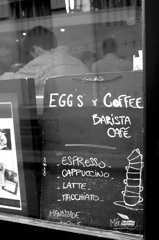 EGGS & COFFEE
BARISTA
CAFÉ
- ESPRESSO -
- CAPPUCCINO -
- LATTE -
- MACCHIATO -
HANDMADE